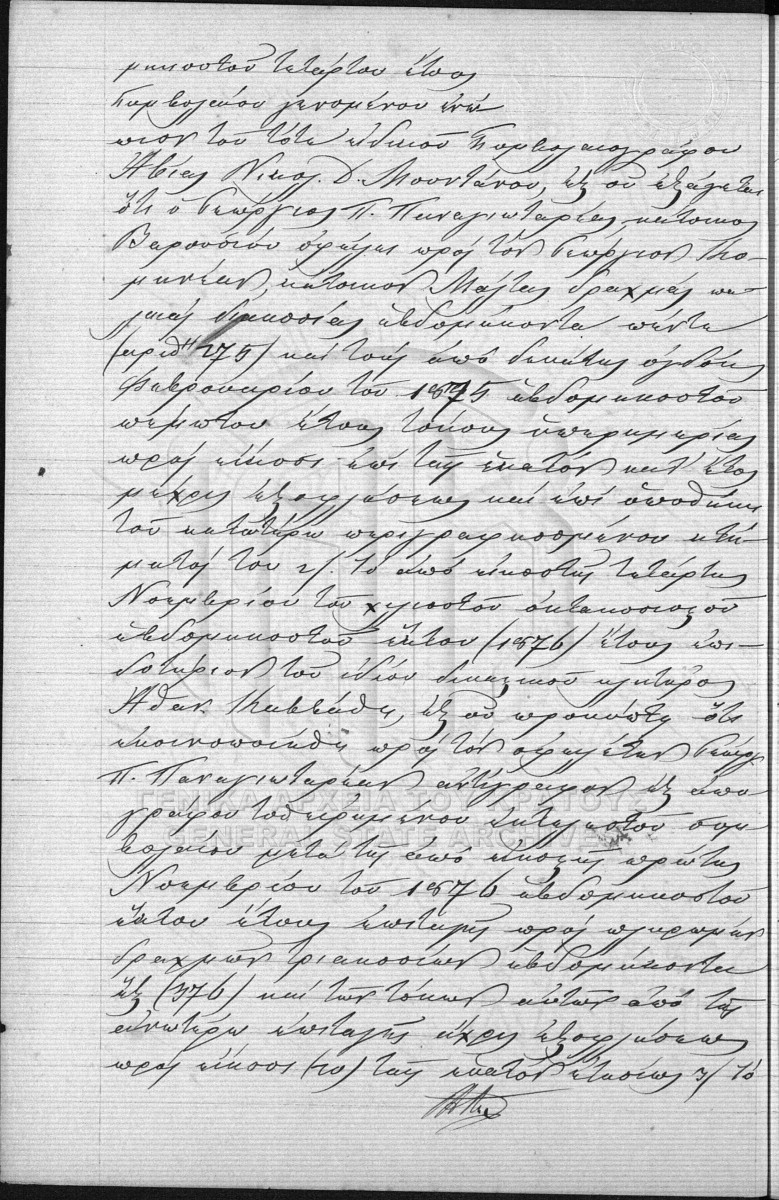 μηκοστοῦ τετάρτου ἔτους
συμβολαίου γενομένου ἐνώ
πιον τοῦ τότε εἰδικοῦ Συμβολαιογράφου
Ἀβίας Νικολ. Δ. Μουντάνου, ἐξ οὗ ἐξάγεται
ὅτι ὁ Γεώργιος Π. Παναγιωταρέας κάτοικος
Βαρουσίου ὀφείλει πρὸς τὸν Γεώργιον
κάτοικον Μάλτας δραχμὰς πα-
λαιὰς διακοσίας ἑβδομήκοντα πέντε
(ἀριθ 275) καὶ τοὺς ἀπὸ δεκάτης ὀγδόης
Φεβρουαρίου τοῦ 1875 ἑβδομηκοστοῦ
πέμπτου ἔτους τόκους ὑπερημερίας
πρὸς εἴκοσι ἐπὶ τοῖς ἑκατὸν κατ' ἔτος
μέχρις ἐξοφλήσεως καὶ ἐπὶ ὑποθήκῃ
τοῦ κατωτέρω περιγραφησομένου κτή-
ματός του 2/. τὸ ἀπὸ εἰκοστῆς τετάρτης
Νοεμβρίου τοῦ χιλιοστοῦ ὀκτακοσιοστοῦ
ἑβδομηκοστοῦ ἕκτου (1876) ἔτους ἐπι-
δοτήριον τοῦ ἰδίου δικαστικοῦ κλητῆρος
Ἀθαν. Καββάθη, ἐξ οὗ προκύπτει ὅτι
ἐκοινοποιήθη πρὸς τὸν ὀφειλέτην Γεώργ.
Π. Παναγιωταρέαν ἀντίγραφον ἐξ ἀπο
γράφου τοῦ εἰρημένου ἐκτελεστοῦ συμ
βολαίου μετὰ τῆς ἀπὸ εἰκοστῆς πρώτης
Νοεμβρίου τοῦ 1876 ἑβδομηκοστοῦ
ἕκτου ἔτους ἐπιταγῆς πρὸς πληρωμὴν
δραχμῶν τριακοσίων ἑβδομήκοντα
ἓξ (376) καὶ τῶν τόκων αὐτῶν ἀπὸ τῆς
ἀνωτέρω ἐπιταγῆς ἄχρις ἐξοφλήσεως
πρὸς εἴκοσι (20) τοῖς ἑκατὸν ἐτησίως 3/ τὸ
ΓΕΝΙΚΑ ΑΡΧΕΙΑ ΤΟΥ ΚΡΑΤΟΥΣ
GENERAL STATE ARCHIVES